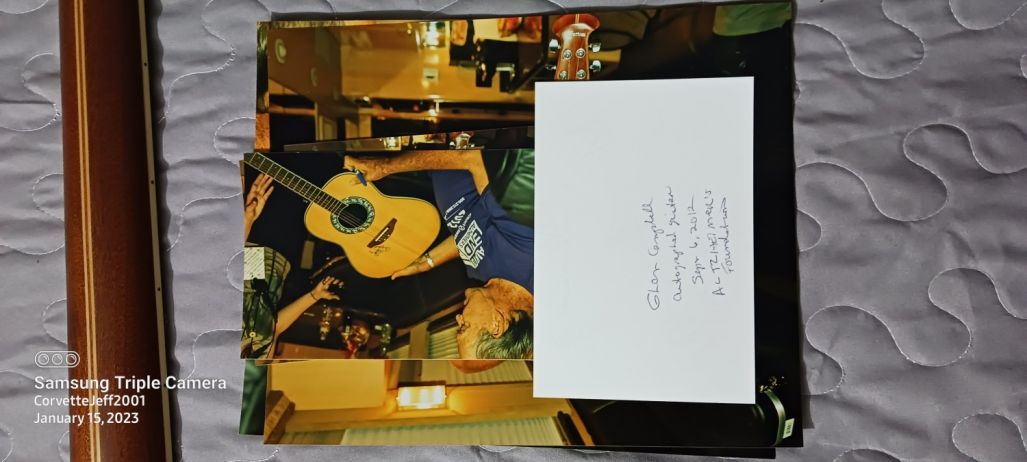 Glen Campbell
autographed guitar
Sept 6, 2012
ALTZHEIMER'S
Foundation
Samsung Triple Camera
CorvetteJeff2001
January 15, 2023